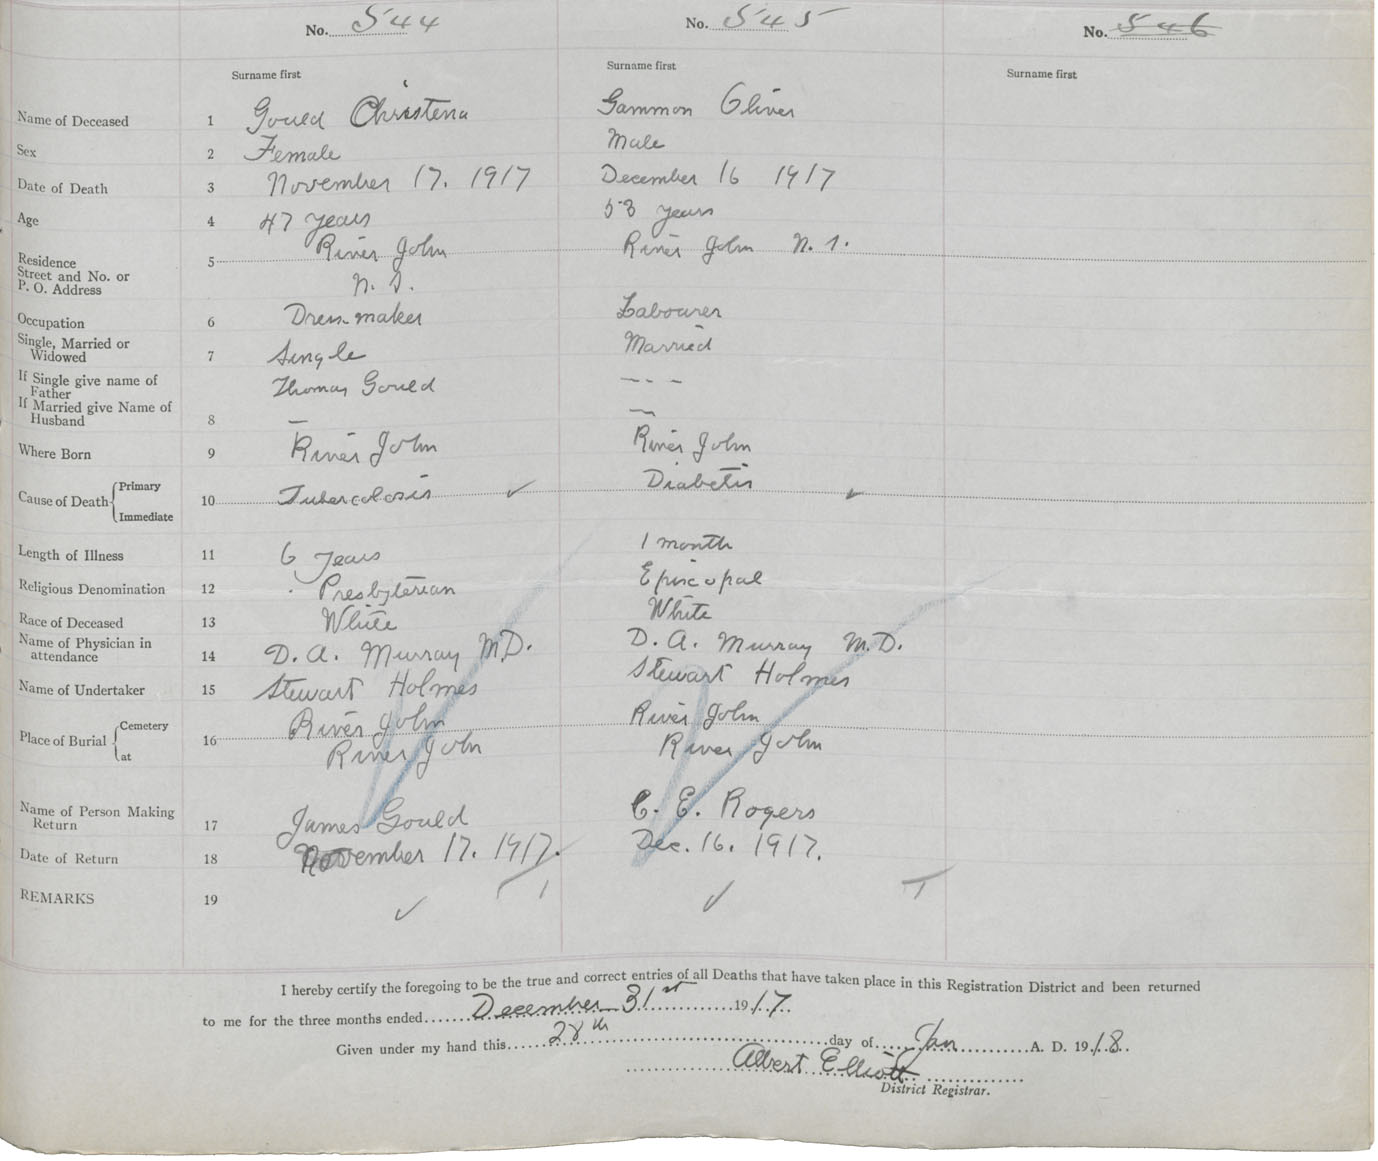 No. 544 No. 545 No. 546
Surname first Surname first Surname first
Name of Deceased 1 Gould Christena Gammon Oliver
Sex 2 Female Male
Date of Death 3 November 17. 1917 December 16 1917
Age 4 47 years 53 years
Residence Street and No. or P. O. Address 5 River John River John N. S.
N. S.
Occupation 6 Dressmaker Labourer
Single, Married or Widowed 7 Single Married
If Single give name of Father Thomas Gould - - -
If Married give Name of Husband 8 — —
Where Born 9 River John River John
Cause of Death { Primary Immediate 10 Tubercolosis ✓ Diabetis ✓
Length of Illness 11 6 years 1 month
Religious Denomination 12 Presbyterian Episcopal
Race of Deceased 13 White White
Name of Physician in attendance 14 D. A. Murray M.D. D. A. Murray M.D.
Name of Undertaker 15 Stewart Holmes Stewart Holmes
Place of Burial { Cemetery 16 River John River John
at River John River John
Name of Person Making Return 17 James Gould C. E. Rogers
Date of Return 18 November 17. 1917. Dec. 16. 1917.
REMARKS 19 ✓ ✓
I hereby certify the foregoing to be the true and correct entries of all Deaths that have taken place in this Registration District and been returned
to me for the three months ended December 31st 1917.
Given under my hand this 28th day of Jan A. D. 1918.
Albert Elliott
District Registrar.